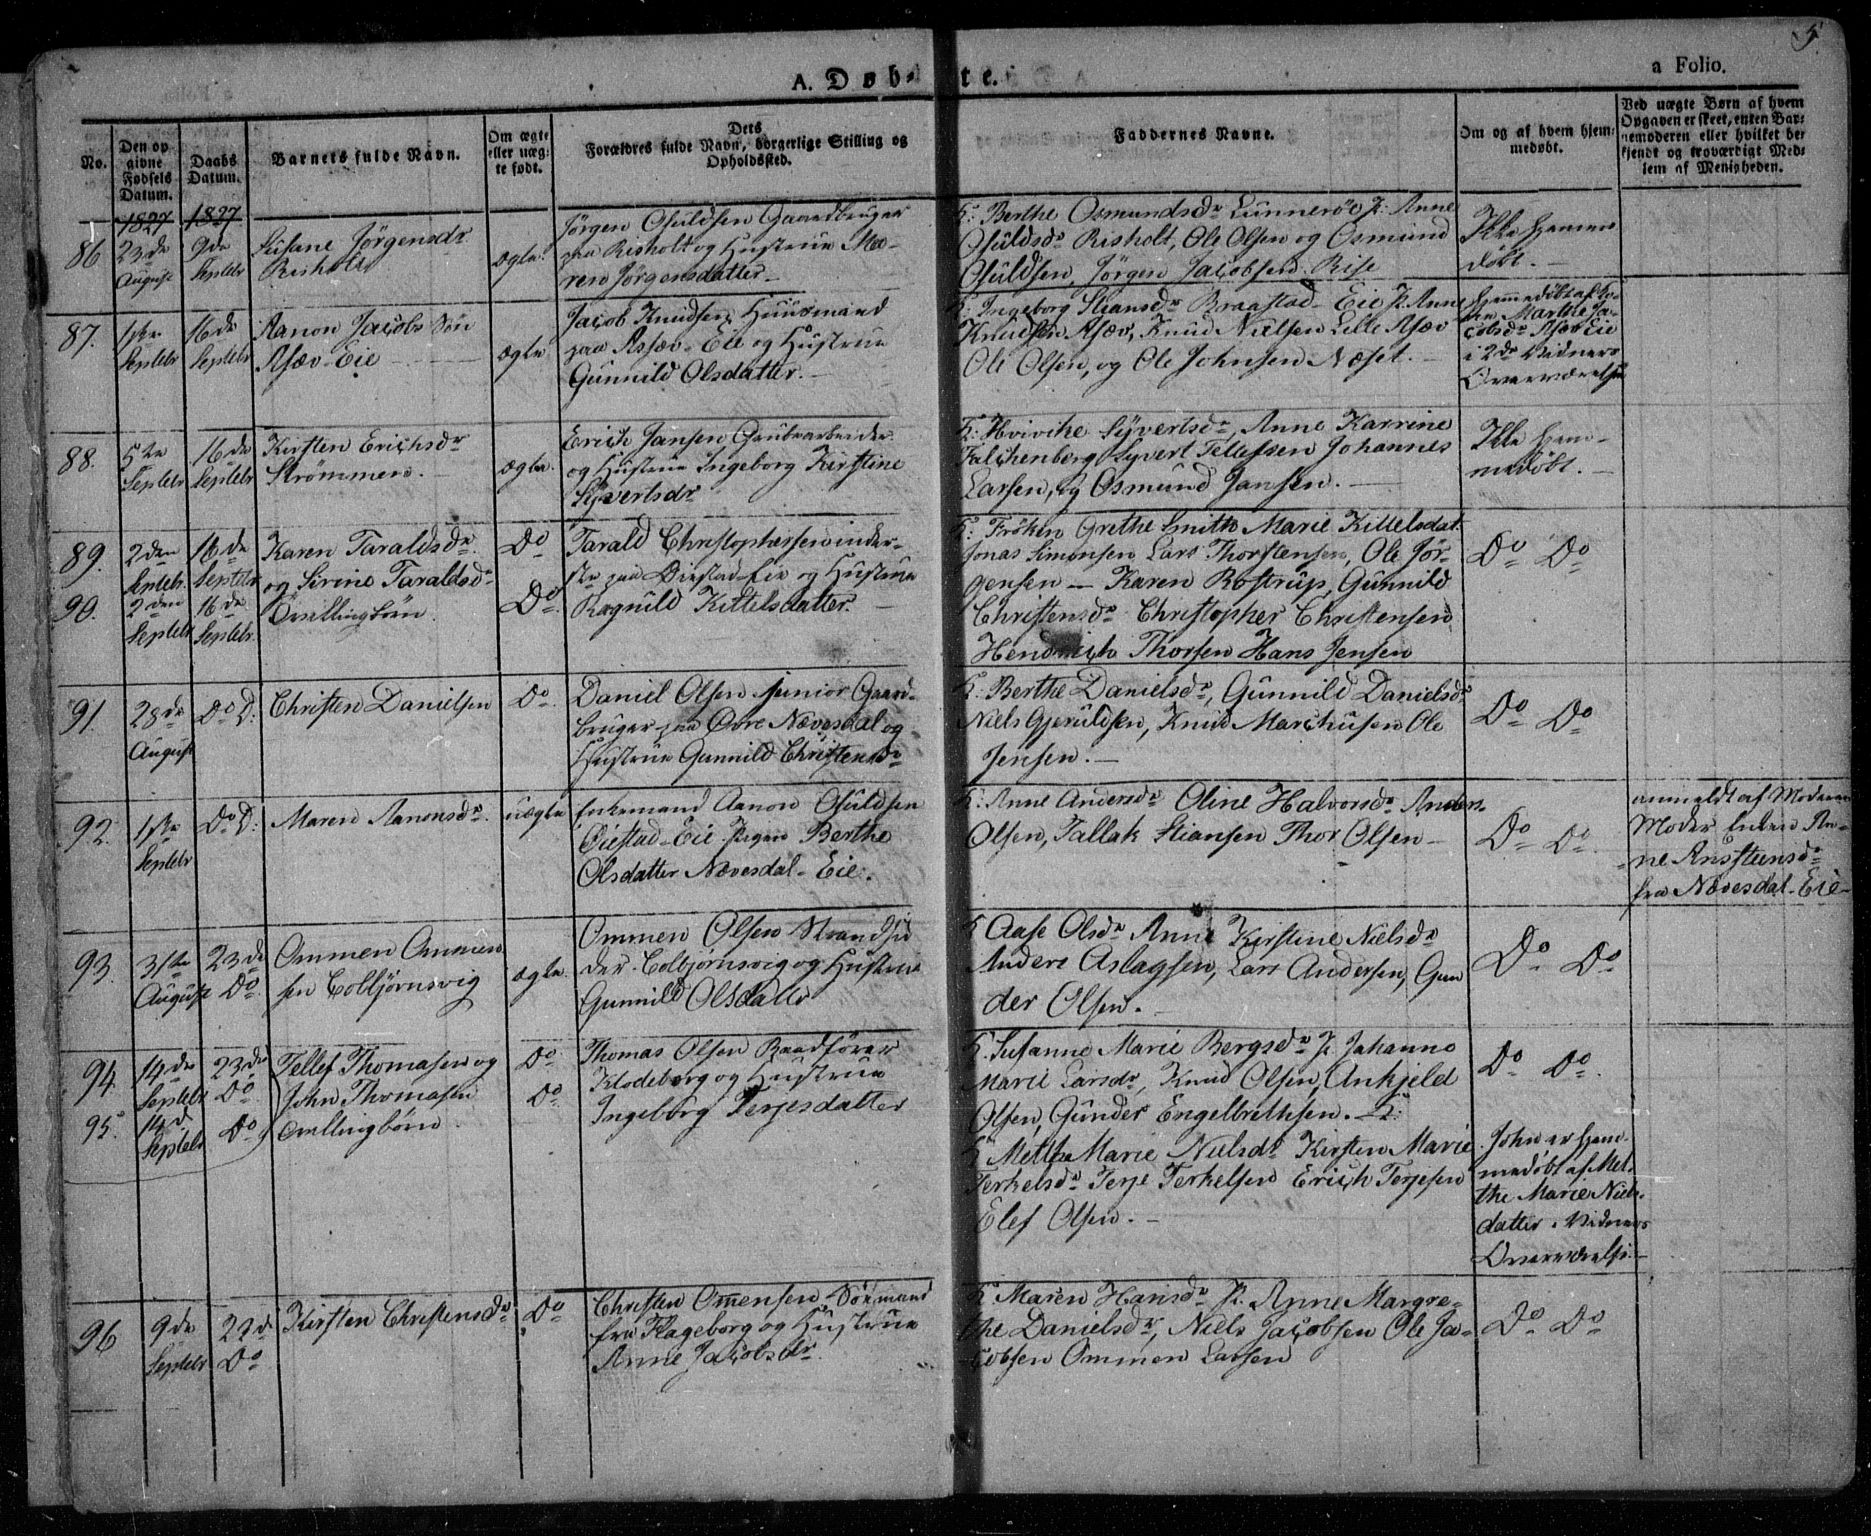 5.
A. Døbte.
a Folio.
No.
Den opgivne Fødsels Datum.
Daabs Datum.
Barnets fulde Navn.
Om ægte eller uægte født.
Dets Forældres fulde Navn, borgerlige Stilling og Opholdssted.
Faddernes Navne.
Om og af hvem hjemmedøbt.
Ved uægte Børn af hvem Opgaven er skeet, enten Barnemoderen eller hvilket bekjendt og troværdigt Medlem af Menigheden.
1827 1827
86 23de August
9de Septebr
Jørgensdr
Risholt
ægte
Jørgen Osuldsen Gaardbruger
paa Risholt og Hustrue Ma-
ren Jørgensdatter
F: Berthe Osmundsdr Lunneröe P: Anne
Osuldsdr Risholt, Ole Olsen og Osmund
Osuldsen, Jørgen Jacobsen Rise
Ikke hjemme
døbt.
87. 1ste Septebr
16de Septebr
Aanon Jacobs Søn
Asæv-Eie
ægte
Jacob Knudsen Huusmand
paa Assæv-Eie og Hustrue
Gunnild Olsdatter.
F: Ingeborg Stiansdr Braastad-Eie P. Anne
Knudsen Asæv, Knud Nielsen Lille Asæv
Ole Olsen, og Ole Johnsen Næset.
Hjemmedøbt af
Marthe Ja-
cobsdr Asæv Eie
i 2de Vidners
Overværelse
88. 5te Septebr
16de Septebr
Kirsten Erichsdr
Strømmen.
ægte
Erich Jansen Grubearbeider
og Hustrue Ingeborg Kirstine
Syvertsdr
F: Hvivike Syvertsdr, Anne Karrine
Falchenberg Syvert Tellefsen Johannes
Larsen, og Osmund Jansen.
Ikke hjem-
medøbt.
89. 2den Septebr.
16de Septebr
Karen Taraldsdr
og Sirine Taraldsdr
90. 2den Septebr
16de Septebr
Tvillingbörn
Do
Do
Tarald Christophersen inder-
ste paa Øiestad-Eie og Hustrue
Ragnild Kittelsdatter.
F: Fröken Grethe Smith Marie Kittelsdat
Jonas Simonsen Lars Thorstensen, Ole Jør-
gensen — Karen Rostrup, Gunnild
Christensdr Christopher Christensen
Hendrich Thorsen Hans Jensen
Do Do
91. 28de August
Do D:
Christen Danielsen
Do
Daniel Olsen junior Gaard-
bruger paa Øvre Nævesdal og
Hustrue Gunnild Christensdr
F: Berthe Danielsdr, Gunnild Danielsdr
Niels Gjeruldsen, Knud Marchusen Ole
Jensen.
Do Do
92. 1ste Septebr
Do D:
Maren Aanonsdr
uægte
Enkemand Aanon Osuldsen
Øiestad-Eie Pigen Berthe
Olsdatter Nævesdal-Eie.
F: Anne Andersdr Oline Halvorsdr Anders
Olsen, Tallak Stiansen Thor Olsen
Do Do
anmeldt af Moderens
Moder Enken An-
ne Anstensdr
fra Nævesdal-Eie
93. 31te August
23de Do
Ommen Ommen
sen Colbjørnsvig
ægte
Ommen Olsen Strandsid
der Colbjørnsvig og Hustrue
Gunnild Olsdatter
F Aase Olsdr Anne Kirstine Nielsdr
Anders Aslagsen, Lars Andersen, Gun
der Olsen.
Do Do
94. 14de Septebr
23de Do
Tellef Thomasen og
John Thomasen
95. 14d. Septebr
Do
Tvillingbörn
Do
Do
Thomas Olsen Baadfører
Klodeborg og Hustrue
Ingeborg Terjesdatter
F. Susanne Marie Bergsdr P. Johanne
Marie Larsdr, Knud Olsen, Ankjeld
Olsen, Gunder Engelbrethsen.
Do Do
F Methe Marie Nielsdr Kirsten Marie
Terkelsdr Terje Terkelsen Erich Terjesen
Elef Olsen.
John er hjem-
medøbt af Met-
the Marie Niels-
datter i Vidners
Overværelse.
96 9de Septebr
Do
Kirsten Christensdr
Do
Christen Omensen Sømand
fra Flageborg og Hustrue
Anne Jacobsdr
F. Maren Hansdr P. Anne Margre-
the Danielsdr, Niels Jacobsen Ole Ja-
cobsen Ommen Larsen
Do Do